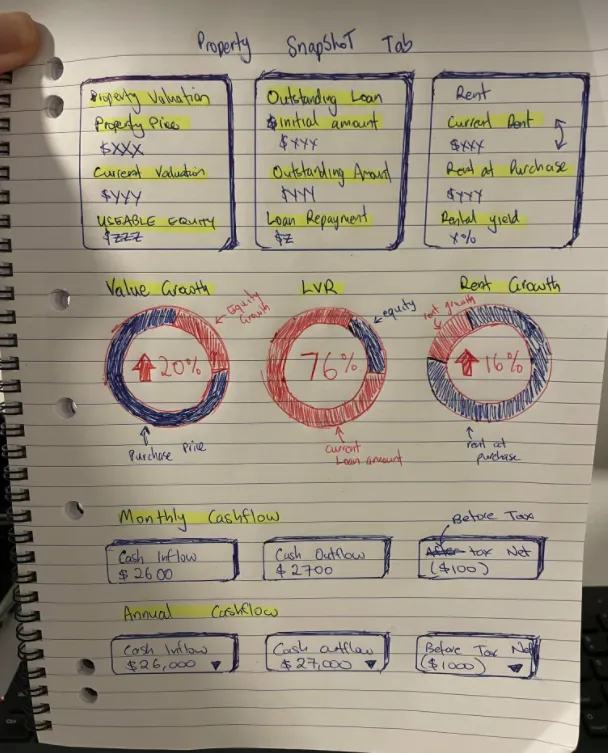 Property SnapShoT Tab
Property Valuation
Property Price
$XXX
Current Valuation
$YYY
USEABLE EQUITY
$ZZZ
Outstanding Loan
$ initial amount
$XYX
Outstanding Amount
$YYY
Loan Repayment
$Z
Rent
Current Rent
$XXX
Rent at Purchase
$YYY
Rental yield
X%
Value Growth
Equity
Growth
20%
Purchase Price
LVR
equity
76%
current
Loan amount
Rent Growth
rent growth
16%
rent at
purchase
Monthly Cashflow
Cash Inflow
$2600
Cash Outflow
$2700
Before Tax
After tax Net
($100)
Annual Cashflow
Cash Inflow
$26,000
Cash outflow
$27,000
Before Tax Net
($1000)